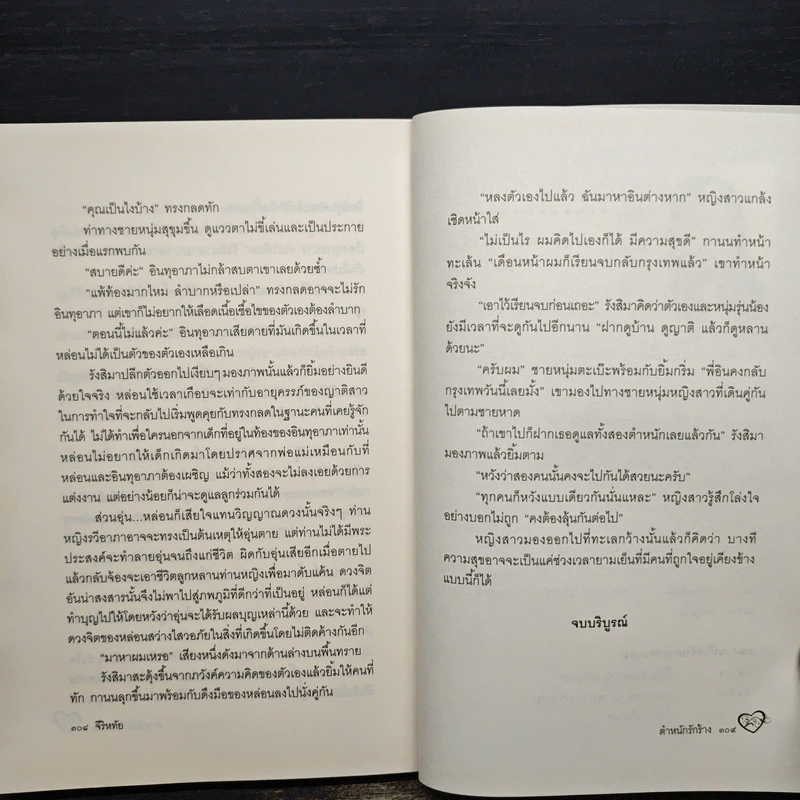 "คุณเป็นไงบ้าง" ทรงกลดทัก
ท่าทางชายหนุ่มสุขุมขึ้น ดูแววตาไม่ขี้เล่นและเป็นประกาย
อย่างเมื่อแรกพบกัน
"สบายดีค่ะ" อินทุอาภาไม่กล้าสบตาเขาเลยด้วยซ้ำ
"แพ้ท้องมากไหม ลำบากหรือเปล่า" ทรงกลดอาจจะไม่รัก
อินทุอาภา แต่เขาก็ไม่อยากให้เลือดเนื้อเชื้อไขของตัวเองต้องลำบาก
"ตอนนี้ไม่แล้วค่ะ" อินทุอาภาเสียดายที่มันเกิดขึ้นในเวลาที่
หล่อนไม่ได้เป็นตัวของตัวเองเหลือเกิน
รังสิมาปลีกตัวออกไปเงียบๆ มองภาพนั้นแล้วก็ยิ้มอย่างยินดี
ด้วยใจจริง หล่อนใช้เวลาเกือบจะเท่ากับอายุครรภ์ของญาติสาว
ในการทำใจที่จะกลับไปเริ่มพูดคุยกับทรงกลดในฐานะคนที่เคยรู้จัก
กันได้ ไม่ได้ทำเพื่อใครนอกจากเด็กที่อยู่ในท้องของอินทุอาภาเท่านั้น
หล่อนไม่อยากให้เด็กเกิดมาโดยปราศจากพ่อแม่เหมือนกับที่
หล่อนและอินทุอาภาต้องเผชิญ แม้ว่าทั้งสองจะไม่ลงเอยด้วยการ
แต่งงาน แต่อย่างน้อยก็น่าจะดูแลลูกร่วมกันได้
ส่วนอุ่น...หล่อนก็เสียใจแทนวิญญาณดวงนั้นจริงๆ ท่าน
หญิงรวีอาภาอาจจะทรงเป็นต้นเหตุให้อุ่นตาย แต่ท่านไม่ได้มีพระ
ประสงค์จะทำลายอุ่นจนถึงแก่ชีวิต ผิดกับอุ่นเสียอีกเมื่อตายไป
แล้วกลับจ้องจะเอาชีวิตลูกหลานท่านหญิงเพื่อมาดับแค้น ดวงจิต
อันน่าสงสารนั้นจึงไม่พาไปสู่ภพภูมิที่ดีกว่าที่เป็นอยู่ หล่อนก็ได้แต่
ทำบุญไปให้โดยหวังว่าอุ่นจะได้รับผลบุญเหล่านี้ด้วย และจะทำให้
ดวงจิตของหล่อนสว่างไสวอภัยในสิ่งที่เกิดขึ้นโดยไม่ติดค้างกันอีก
"มาหาผมเหรอ" เสียงหนึ่งดังมาจากด้านล่างบนพื้นทราย
รังสิมาสะดุ้งขึ้นจากภวังค์ความคิดของตัวเองแล้วยิ้มให้คนที่
ทัก กานนลุกขึ้นมาพร้อมกับดึงมือของหล่อนลงไปนั่งคู่กัน
๓๐๘ จีริหทัย
"หลงตัวเองไปแล้ว ฉันมาหาอินต่างหาก" หญิงสาวแกล้ง
เชิดหน้าใส่
"ไม่เป็นไร ผมคิดไปเองก็ได้ มีความสุขดี" กานนทำหน้า
ทะเล้น "เดือนหน้าผมก็เรียนจบกลับกรุงเทพแล้ว" เขาทำหน้า
จริงจัง
"เอาไว้เรียนจบก่อนเถอะ" รังสิมาคิดว่าตัวเองและหนุ่มรุ่นน้อง
ยังมีเวลาที่จะดูกันไปอีกนาน "ฝากดูบ้าน ดูญาติ แล้วก็ดูหลาน
ด้วยนะ"
"ครับผม" ชายหนุ่มตะเบ๊ะพร้อมกับยิ้มกริ่ม "พี่อินคงกลับ
กรุงเทพวันนี้เลยมั้ง" เขามองไปทางชายหนุ่มหญิงสาวที่เดินคู่กัน
ไปตามชายหาด
"ถ้าเขาไปก็ฝากเธอดูแลทั้งสองตำหนักเลยแล้วกัน" รังสิมา
มองภาพแล้วยิ้มตาม
"หวังว่าสองคนนั้นคงจะไปกันได้สวยนะครับ"
"ทุกคนก็หวังแบบเดียวกันนั่นแหละ" หญิงสาวรู้สึกโล่งใจ
อย่างบอกไม่ถูก "คงต้องลุ้นกันต่อไป"
หญิงสาวมองออกไปที่ทะเลกว้างนั้นแล้วก็คิดว่า บางที
ความสุขอาจจะเป็นแค่ช่วงเวลายามเย็นที่มีคนที่ถูกใจอยู่เคียงข้าง
แบบนี้ก็ได้
จบบริบูรณ์
ตำหนักรักร้าง ๓๐๙